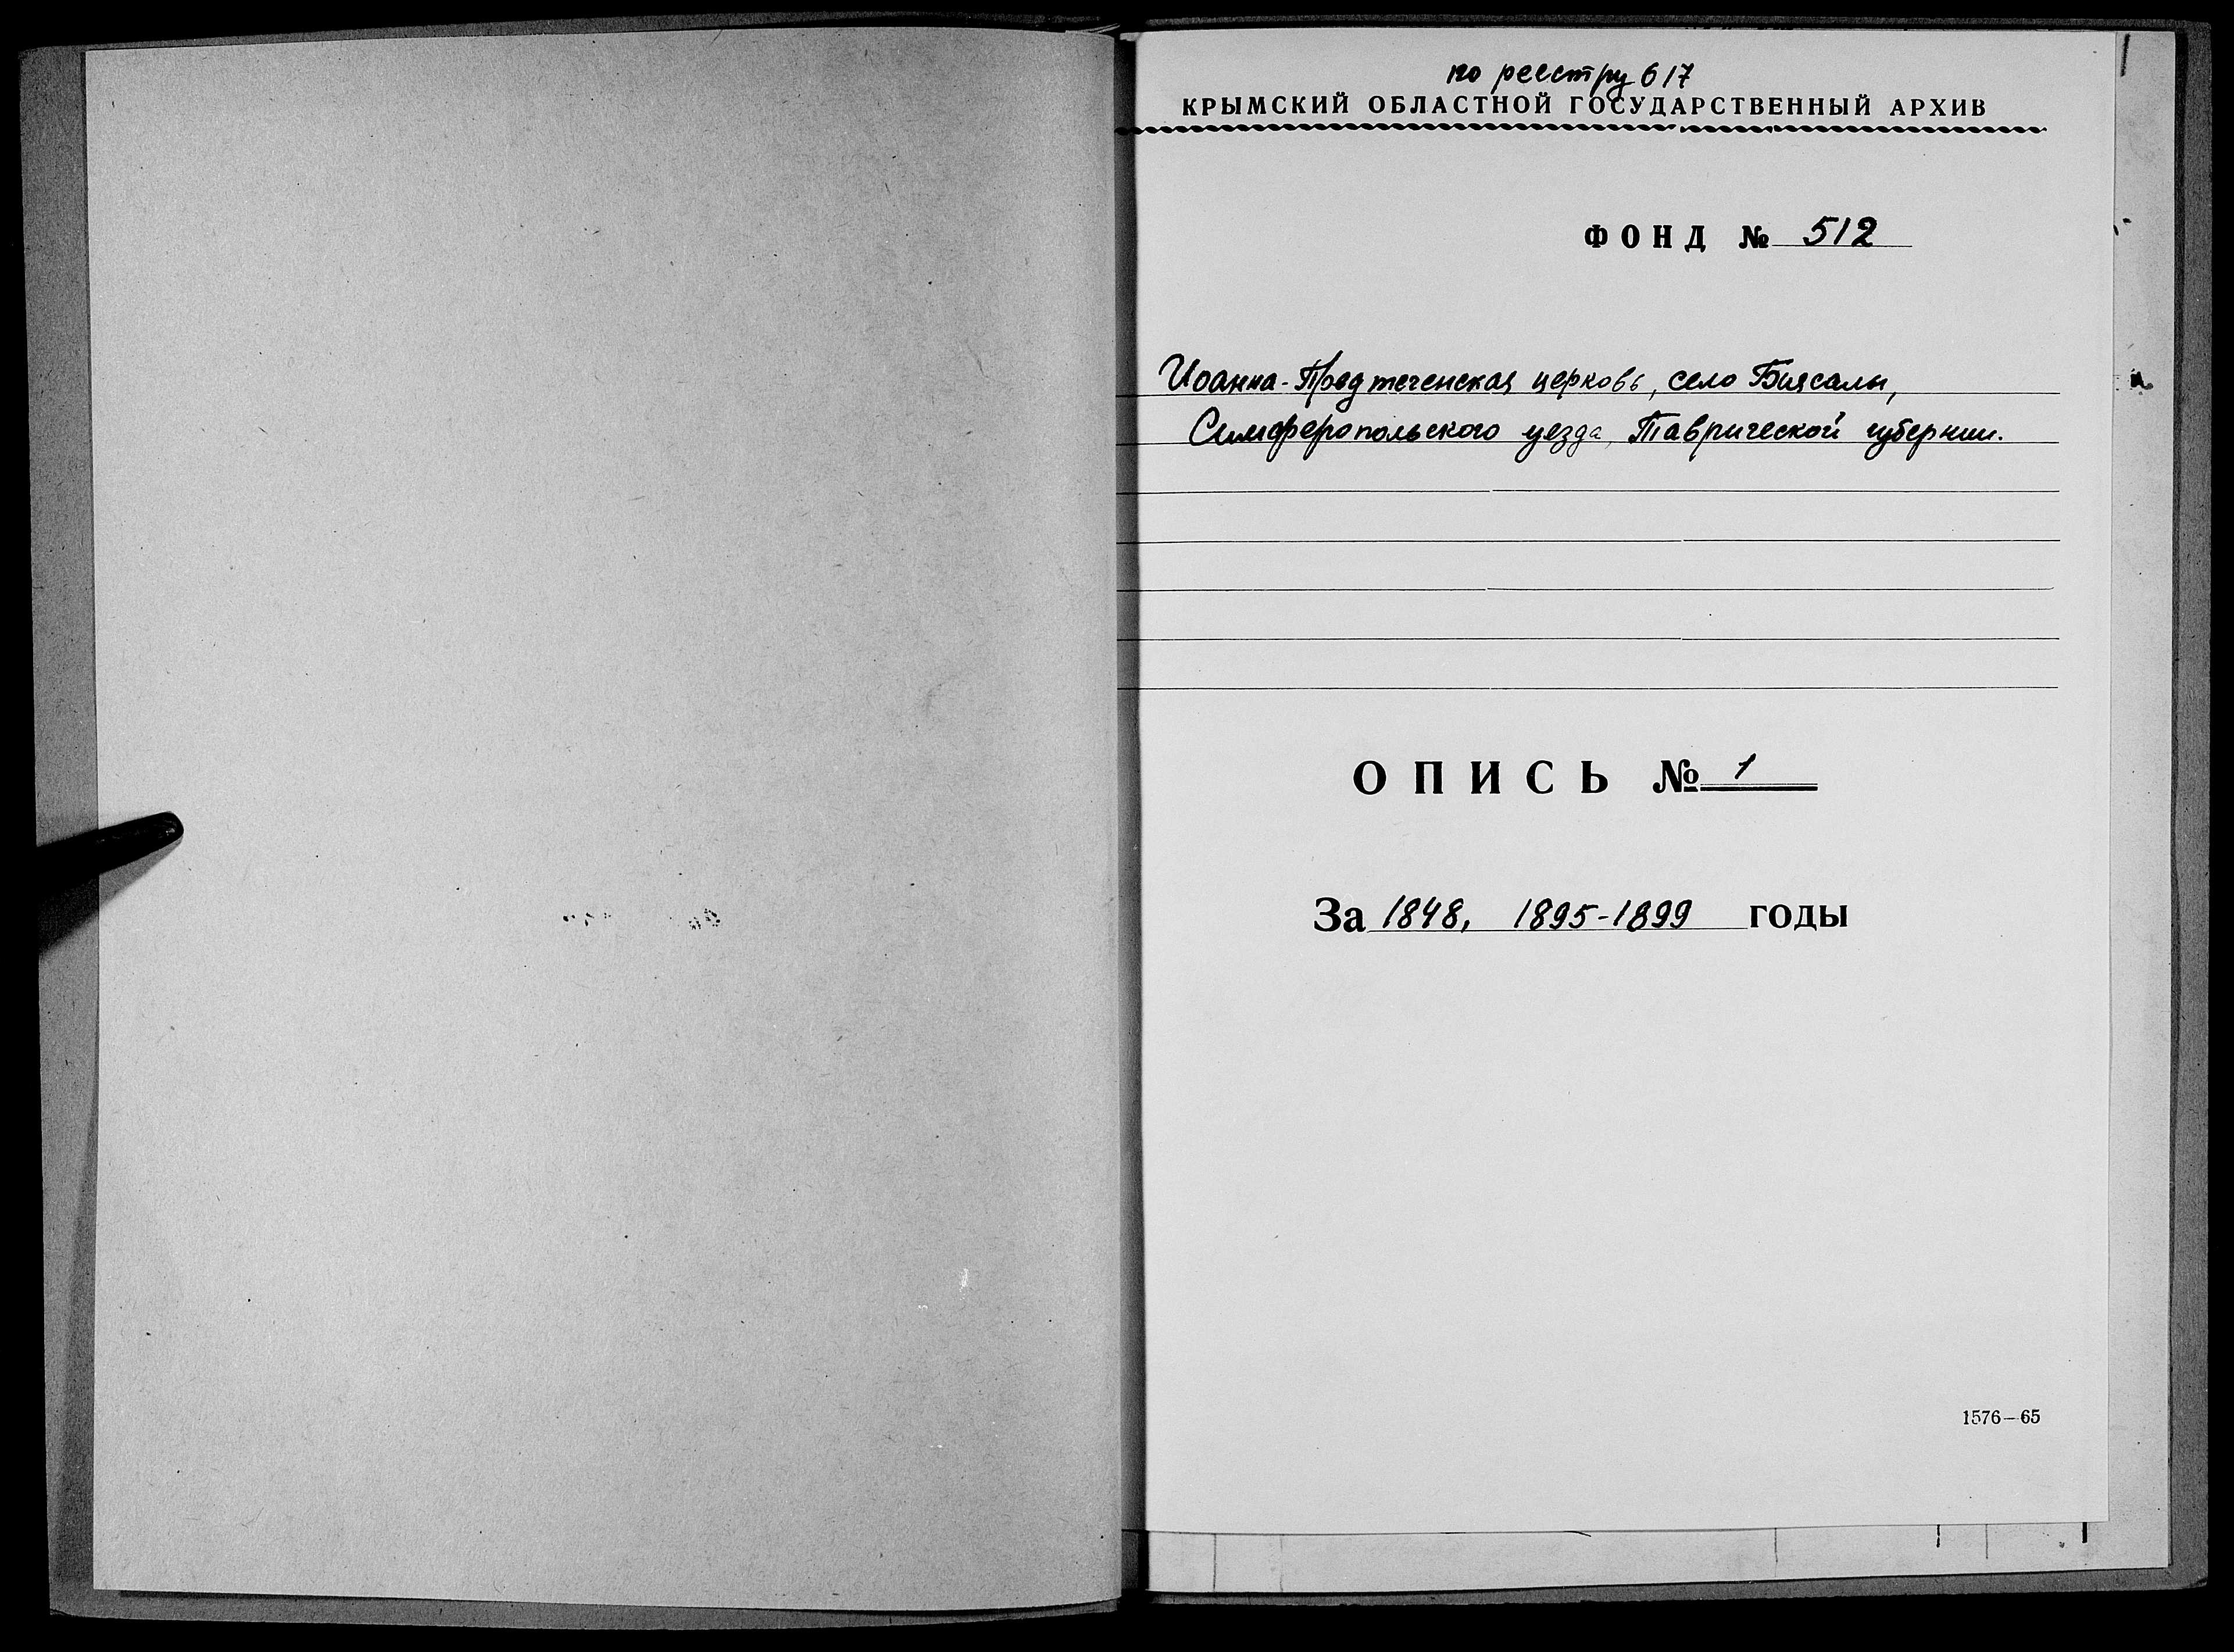 по реестру 617
КРЫМСКИЙ ОБЛАСТНОЙ ГОСУДАРСТВЕННЫЙ АРХИВ
ФОНД № 512
Иоанна-Предтеченская церковь, село Биясалы,
Симферопольского уезда, Таврической губернии.
ОПИСЬ № 1
За 1848, 1895-1899 годы
1576—65